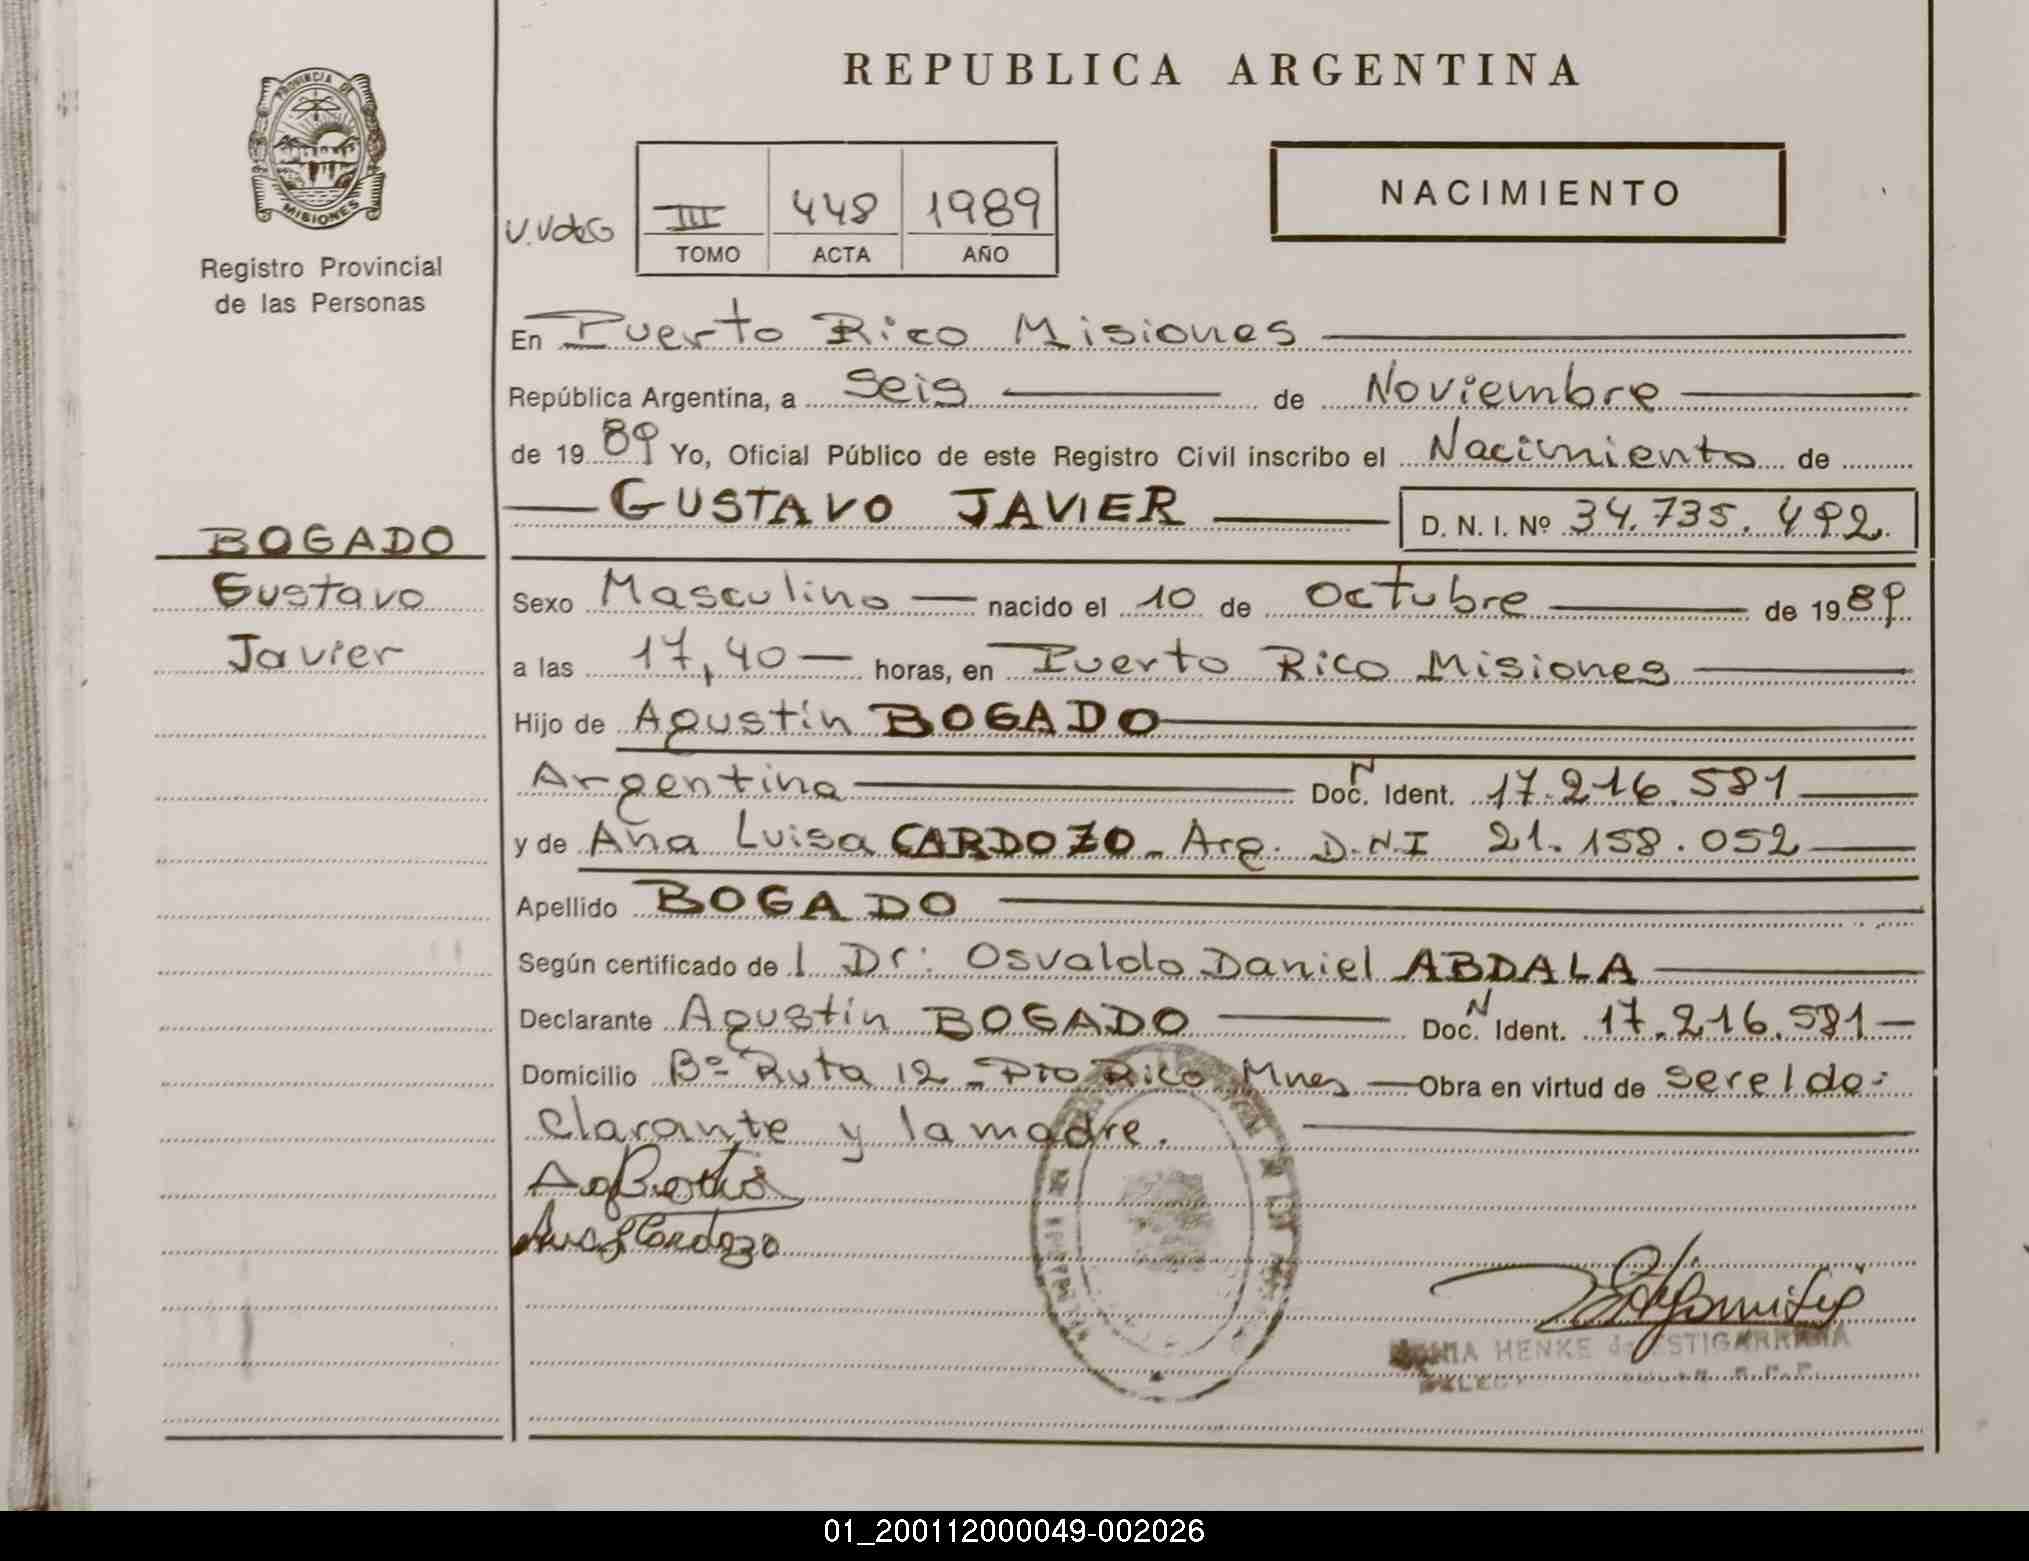 REPUBLICA ARGENTINA
PROVINCIA DE
MISIONES
Registro Provincial
de las Personas
III 448 1989
TOMO ACTA AÑO
NACIMIENTO
En Puerto Rico Misiones
República Argentina, a Seis de Noviembre
de 1989 Yo, Oficial Público de este Registro Civil inscribo el Nacimiento de
GUSTAVO JAVIER D. N. I. Nº 34.735.492.
BOGADO
Gustavo
Javier
Sexo Masculino nacido el 10 de Octubre de 1989
a las 17,40 horas, en Puerto Rico Misiones
Hijo de Agustín BOGADO
Argentina Doc. N Ident. 17.216.581
y de Ana Luisa CARDOZO - Arg. D.N.I 21.158.052
Apellido BOGADO
Según certificado de l Dr: Osvaldo Daniel ABDALA
Declarante Agustín BOGADO Doc. N Ident. 17.216.581
Domicilio Bº Ruta 12 - Pto Rico Mnes Obra en virtud de ser el de-
clarante y la madre.
Cardozo
HENKE de ESTIGARRIBIA
01_200112000049-002026